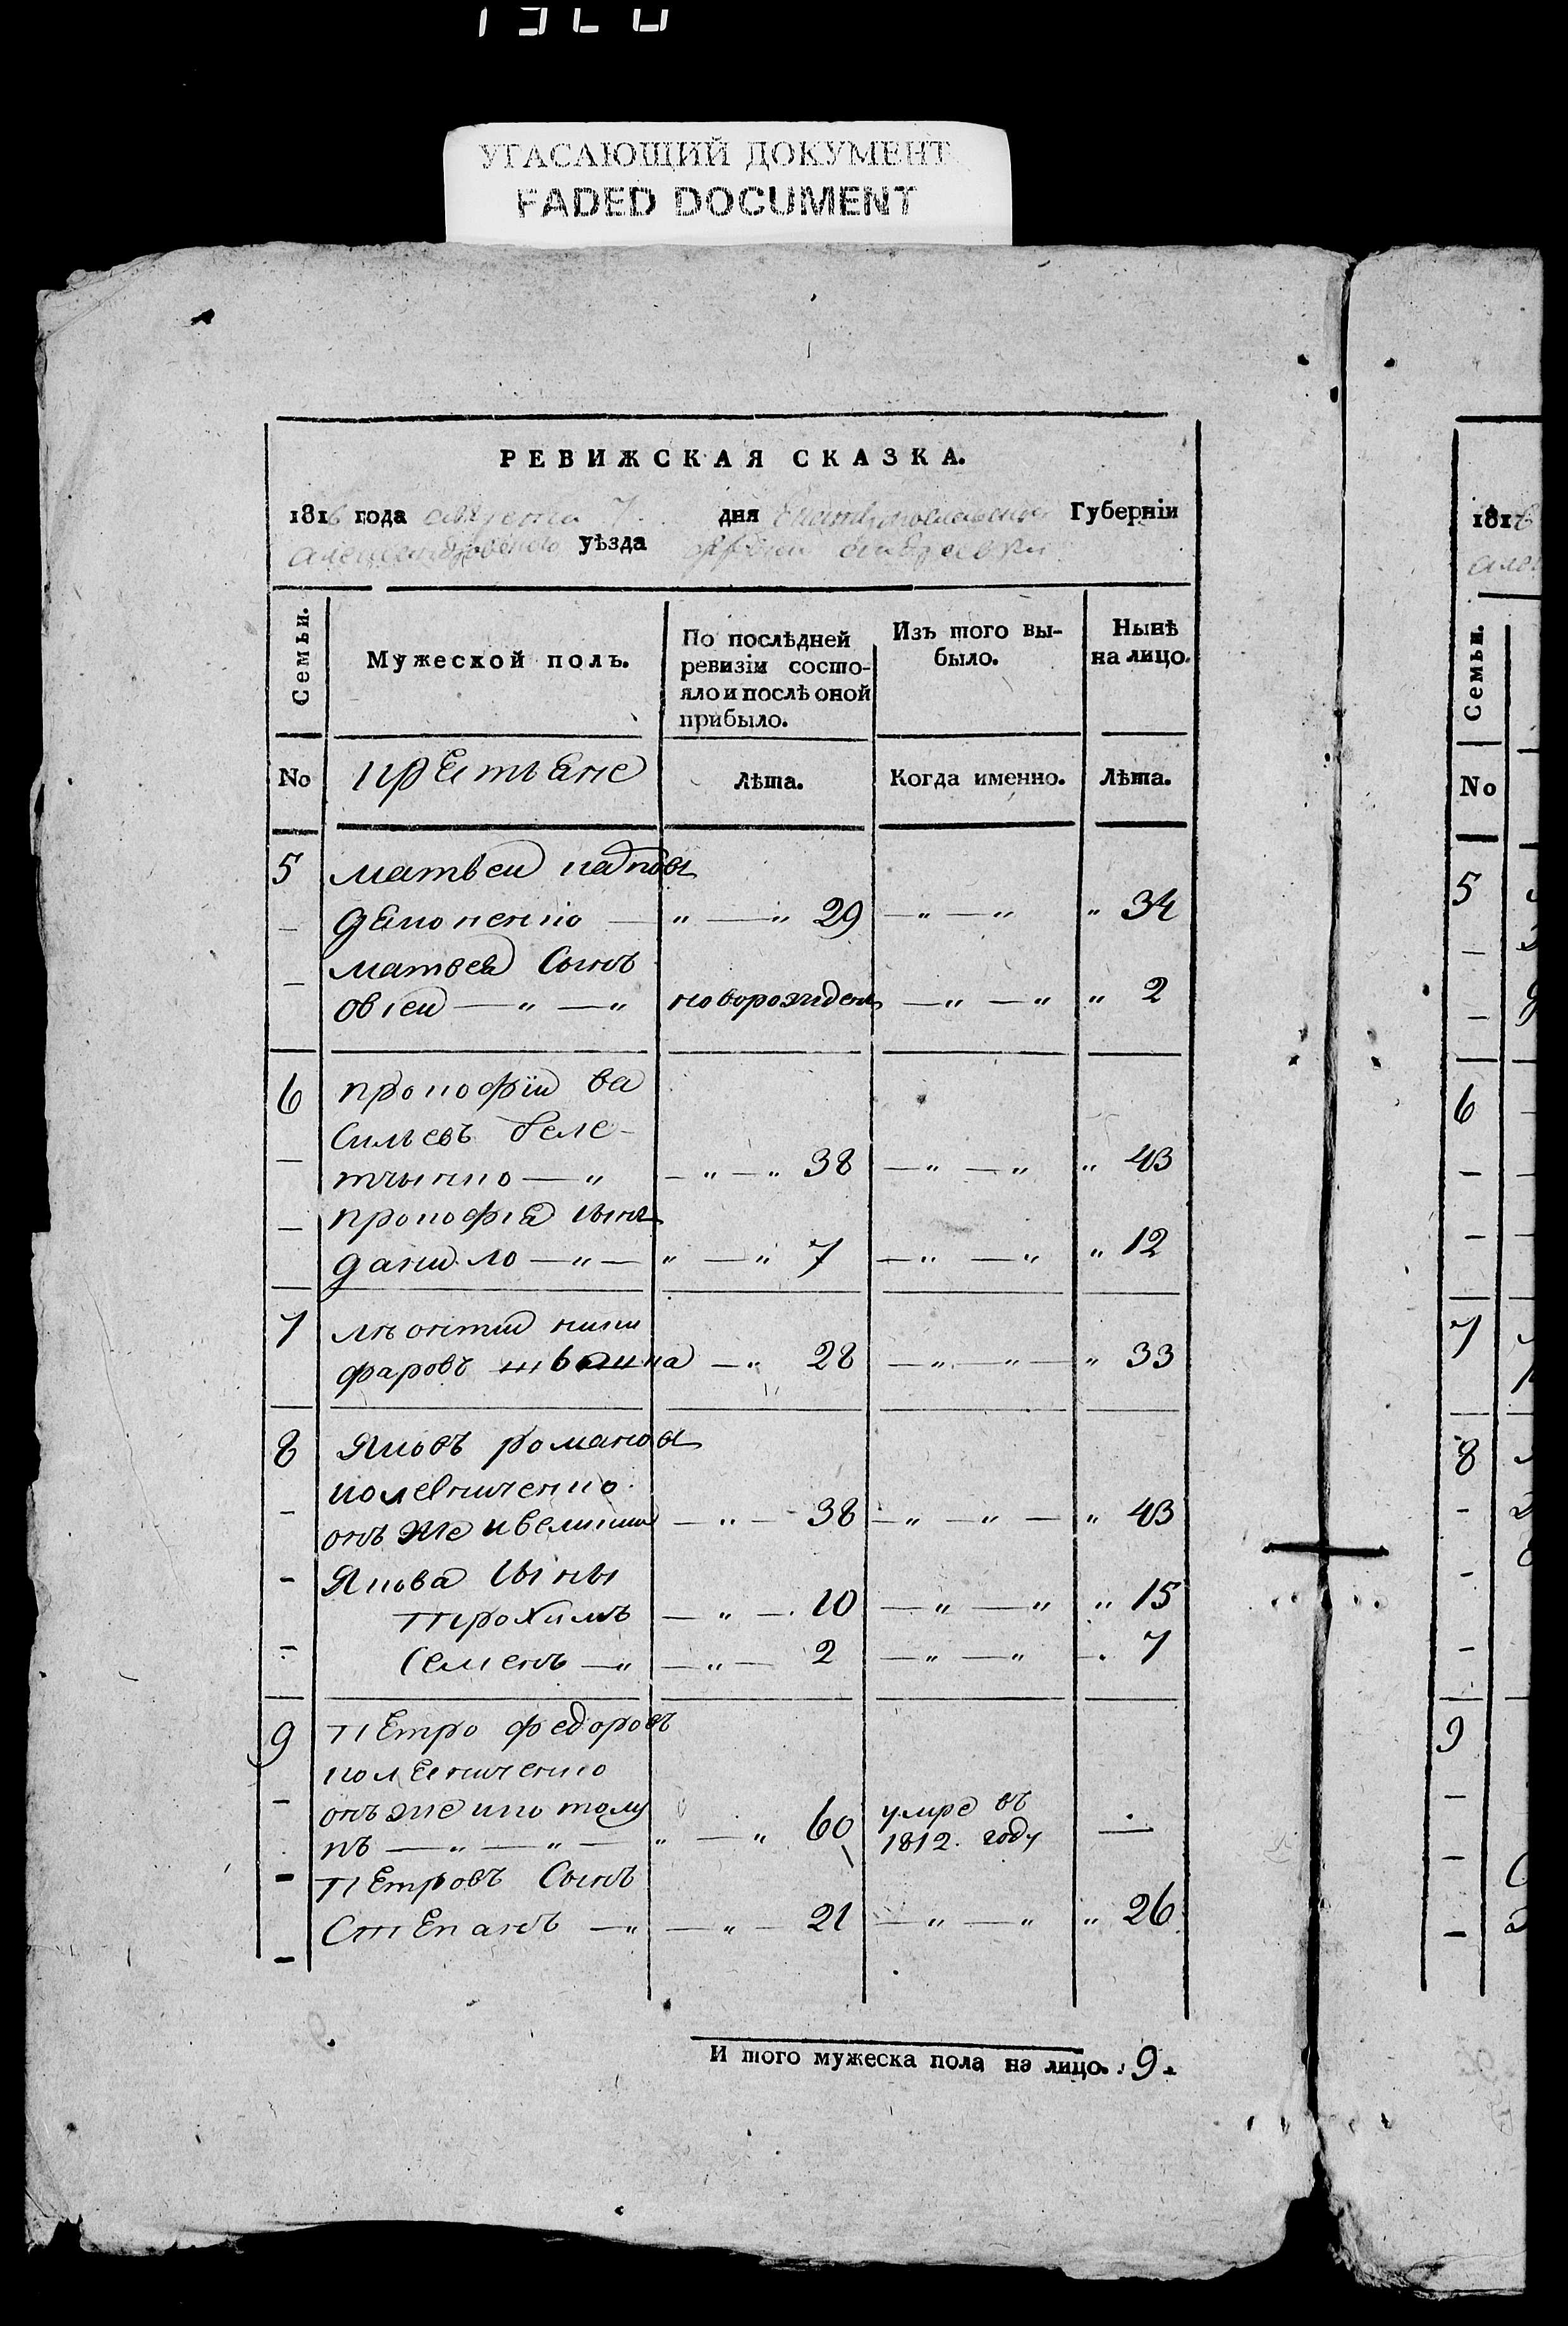 УГАСАЮЩИЙ ДОКУМЕНТ
FADED DOCUMENT
РЕВИЖСКАЯ СКАЗКА.
1816 года августа 7. дня Екатеринославской Губерніи
александровского уѣзда
Семьи.
Мужеской полъ.
По послѣдней ревизіи состояло и послѣ оной прибыло.
Изъ того выбыло.
Нынѣ на лицо.
No крестьяне лѣта. Когда именно. Лѣта.
5 матвеи карповъ
— — „ — „ 29 — „ — „ „ 34
— матвея Сынъ
овсеи — „ — „ новорожденъ — „ — „ „ 2
6 прокофіи ва
Сильевъ беле-
— — „ — „ — „ 38 — „ — „ „ 43
— прокофія сынъ
данило — „ — „ — „ 7 — „ — „ „ 12
7 леонтии ники
фаровъ — „ 28 — „ — „ — „ 33
8 Яковъ романовъ
колесниченко
— онъ же — „ — 38 — „ — „ — „ 43
— Якова сыны
Трохимъ — „ — 10 — „ — „ „ 15
— Семенъ — „ — „ — 2 — „ — „ — 7
9 Петро федоровъ
колесниченко
— онъ же
— „ — „ — „ — „ 60 умре въ 1812. году —
— Петровъ Сынъ
Степанъ — „ — „ — 21 — „ — „ „ 26
—
И того мужеска пола на лицо. 9.
1816
Семьи.
No
5
6
7
8
9